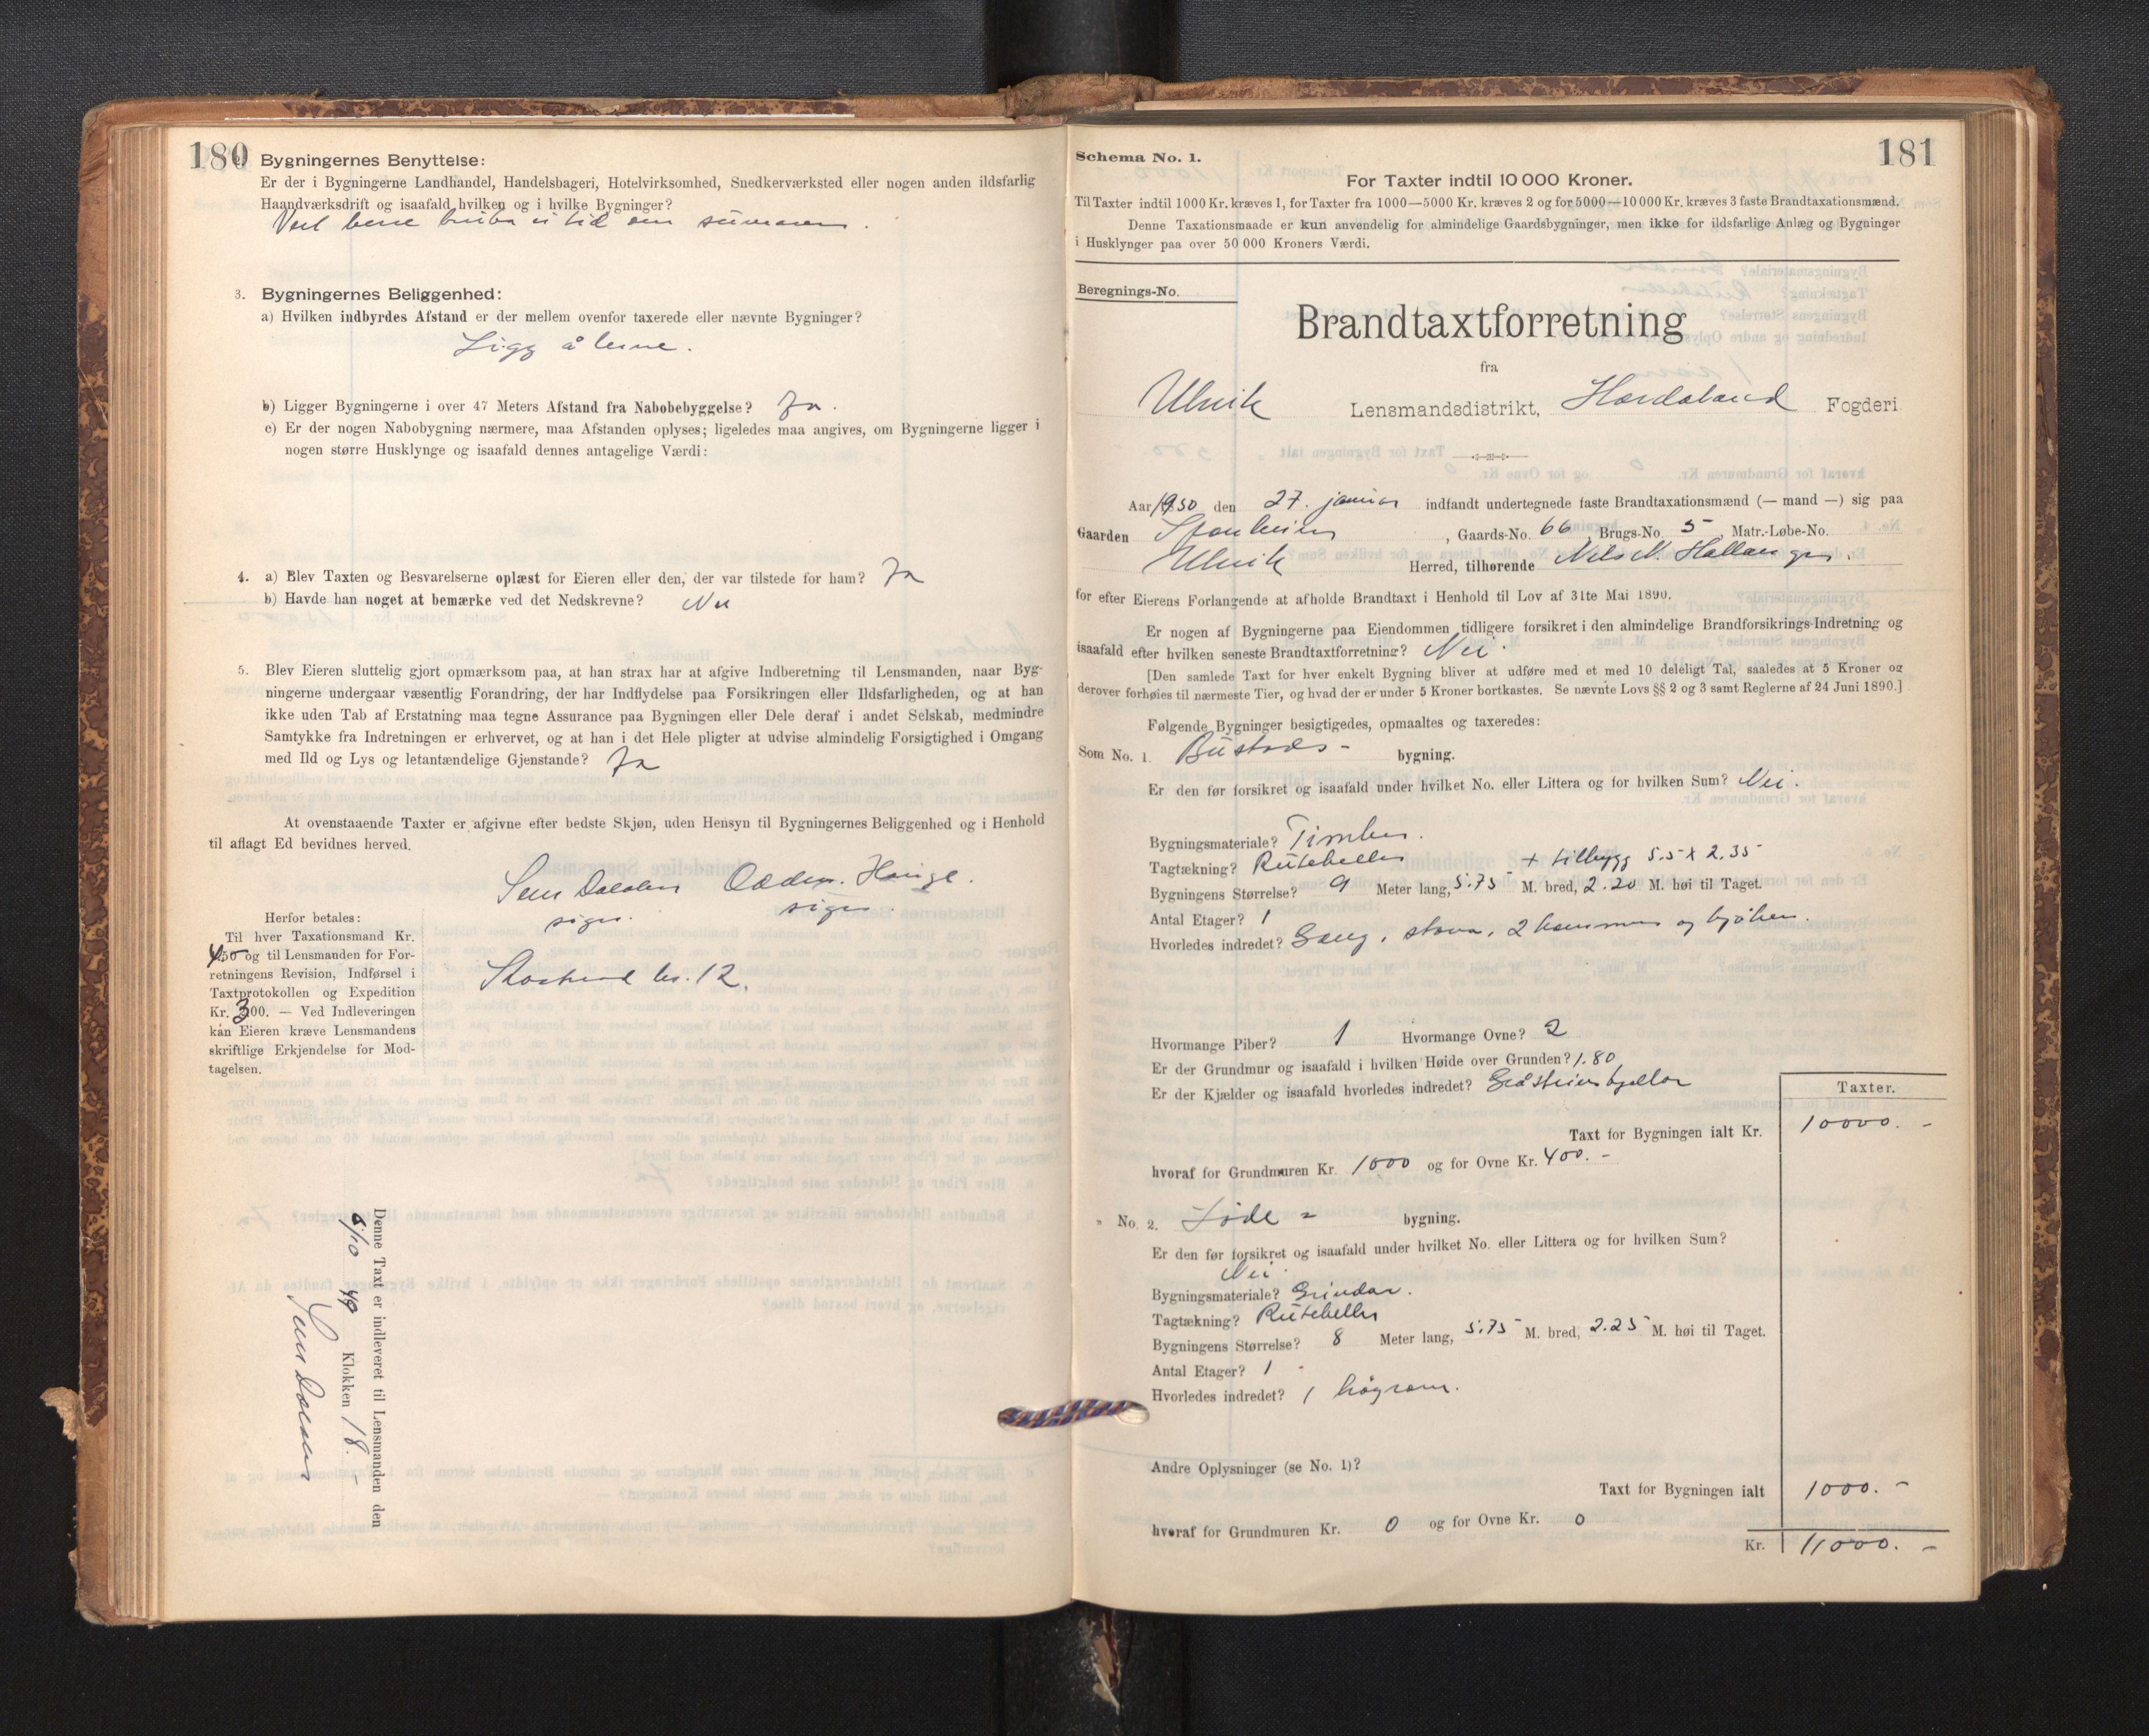 180
Bygningernes Benyttelse:
Er der i Bygningerne Landhandel, Handelsbageri, Hotelvirksomhed, Snedkerværksted eller nogen anden ildsfarlig
Haandværksdrift og isaafald hvilken og i hvilke Bygninger?
Vert bere bruka ei tid om sumaren.
3. Bygningernes Beliggenhed:
a) Hvilken indbyrdes Afstand er der mellem ovenfor taxerede eller nævnte Bygninger?
Ligg åleine.
b) Ligger Bygningerne i over 47 Meters Afstand fra Nabobebyggelse? Ja.
c) Er der nogen Nabobygning nærmere, maa Afstanden oplyses; ligeledes maa angives, om Bygningerne ligger i
nogen større Husklynge og isaafald dennes antagelige Værdi:
4. a) Blev Taxten og Besvarelserne oplæst for Eieren eller den, der var tilstede for ham? Ja
b) Havde han noget at bemærke ved det Nedskrevne? Nei
5. Blev Eieren sluttelig gjort opmærksom paa, at han strax har at afgive Indberetning til Lensmanden, naar Byg-
ningerne undergaar væsentlig Forandring, der har Indflydelse paa Forsikringen eller Ildsfarligheden, og at han
ikke uden Tab af Erstatning maa tegne Assurance paa Bygningen eller Dele deraf i andet Selskab, medmindre
Samtykke fra Indretningen er erhvervet, og at han i det Hele pligter at udvise almindelig Forsigtighed i Omgang
med Ild og Lys og letantændelige Gjenstande? Ja
At ovenstaaende Taxter er afgivne efter bedste Skjøn, uden Hensyn til Bygningernes Beliggenhed og i Henhold
til aflagt Ed bevidnes herved.
Hauge.
sign. sign.
Herfor betales:
Til hver Taxationsmand Kr.
4.50 og til Lensmanden for For-
retningens Revision, Indførsel i
Taxtprotokollen og Expedition
Kr. 3.00. — Ved Indleveringen
kan Eieren kræve Lensmandens
skriftlige Erkjendelse for Mod-
tagelsen.
12.
Denne Taxt er indleveret til Lensmanden den
6/10 49 Klokken 18.-
181
Schema No. 1.
For Taxter indtil 10 000 Kroner.
Til Taxter indtil 1000 Kr. kræves 1, for Taxter fra 1000—5000 Kr. kræves 2 og for 5000—10 000 Kr. kræves 3 faste Brandtaxationsmænd.
Denne Taxationsmaade er kun anvendelig for almindelige Gaardsbygninger, men ikke for ildsfarlige Anlæg og Bygninger
i Husklynger paa over 50 000 Kroners Værdi.
Beregnings-No.
Brandtaxtforretning
fra
Ulvik Lensmandsdistrikt, Hordaland Fogderi
Aar 1950 den 27. januar indfandt undertegnede faste Brandtaxationsmænd (— mand —) sig paa
Gaarden , Gaards-No. 66 Brugs-No. 5 Matr.-Løbe-No.
Ulvik Herred, tilhørende Nils N. Hallanger.
for efter Eierens Forlangende at afholde Brandtaxt i Henhold til Lov af 31te Mai 1890.
Er nogen af Bygningerne paa Eiendommen tidligere forsikret i den almindelige Brandforsikrings-Indretning og
isaafald efter hvilken seneste Brandtaxtforretning? Nei.
[Den samlede Taxt for hver enkelt Bygning bliver at udføre med et med 10 deleligt Tal, saaledes at 5 Kroner og
derover forhøies til nærmeste Tier, og hvad der er under 5 Kroner bortkastes. Se nævnte Lovs §§ 2 og 3 samt Reglerne af 24 Juni 1890.]
Følgende Bygninger besigtigedes, opmaaltes og taxeredes:
Som No. 1. Bustads- bygning.
Er den før forsikret og isaafald under hvilket No. eller Littera og for hvilken Sum? Nei.
Bygningsmateriale? Timber.
Tagtækning? Ruteheller + tilbygg 5.5 x 2.35
Bygningens Størrelse? 9 Meter lang, 5.75 M. bred, 2.20 M. høi til Taget.
Antal Etager? 1
Hvorledes indredet? Gang, stova, 2 kammer og kjøken.
Hvormange Piber? 1 Hvormange Ovne? 2
Er der Grundmur og isaafald i hvilken Høide over Grunden? 1.80
Er der Kjælder og isaafald hvorledes indredet? Gråsteinskjellar
Taxter.
Taxt for Bygningen ialt Kr. 10000.-
hvoraf for Grundmuren Kr. 1000 og for Ovne Kr. 400.-
" No. 2. Løde- bygning.
Er den før forsikret og isaafald under hvilket No. eller Littera og for hvilken Sum?
Nei.
Bygningsmateriale? Grindar.
Tagtækning? Ruteheller
Bygningens Størrelse? 8 Meter lang, 5.75 M. bred, 2.25 M. høi til Taget.
Antal Etager? 1
Hvorledes indredet? 1 høyrom.
Andre Oplysninger (se No. 1)?
Taxt for Bygningen ialt 1000.-
hvoraf for Grundmuren Kr. 0 og for Ovne Kr. 0
Kr. 11000.-